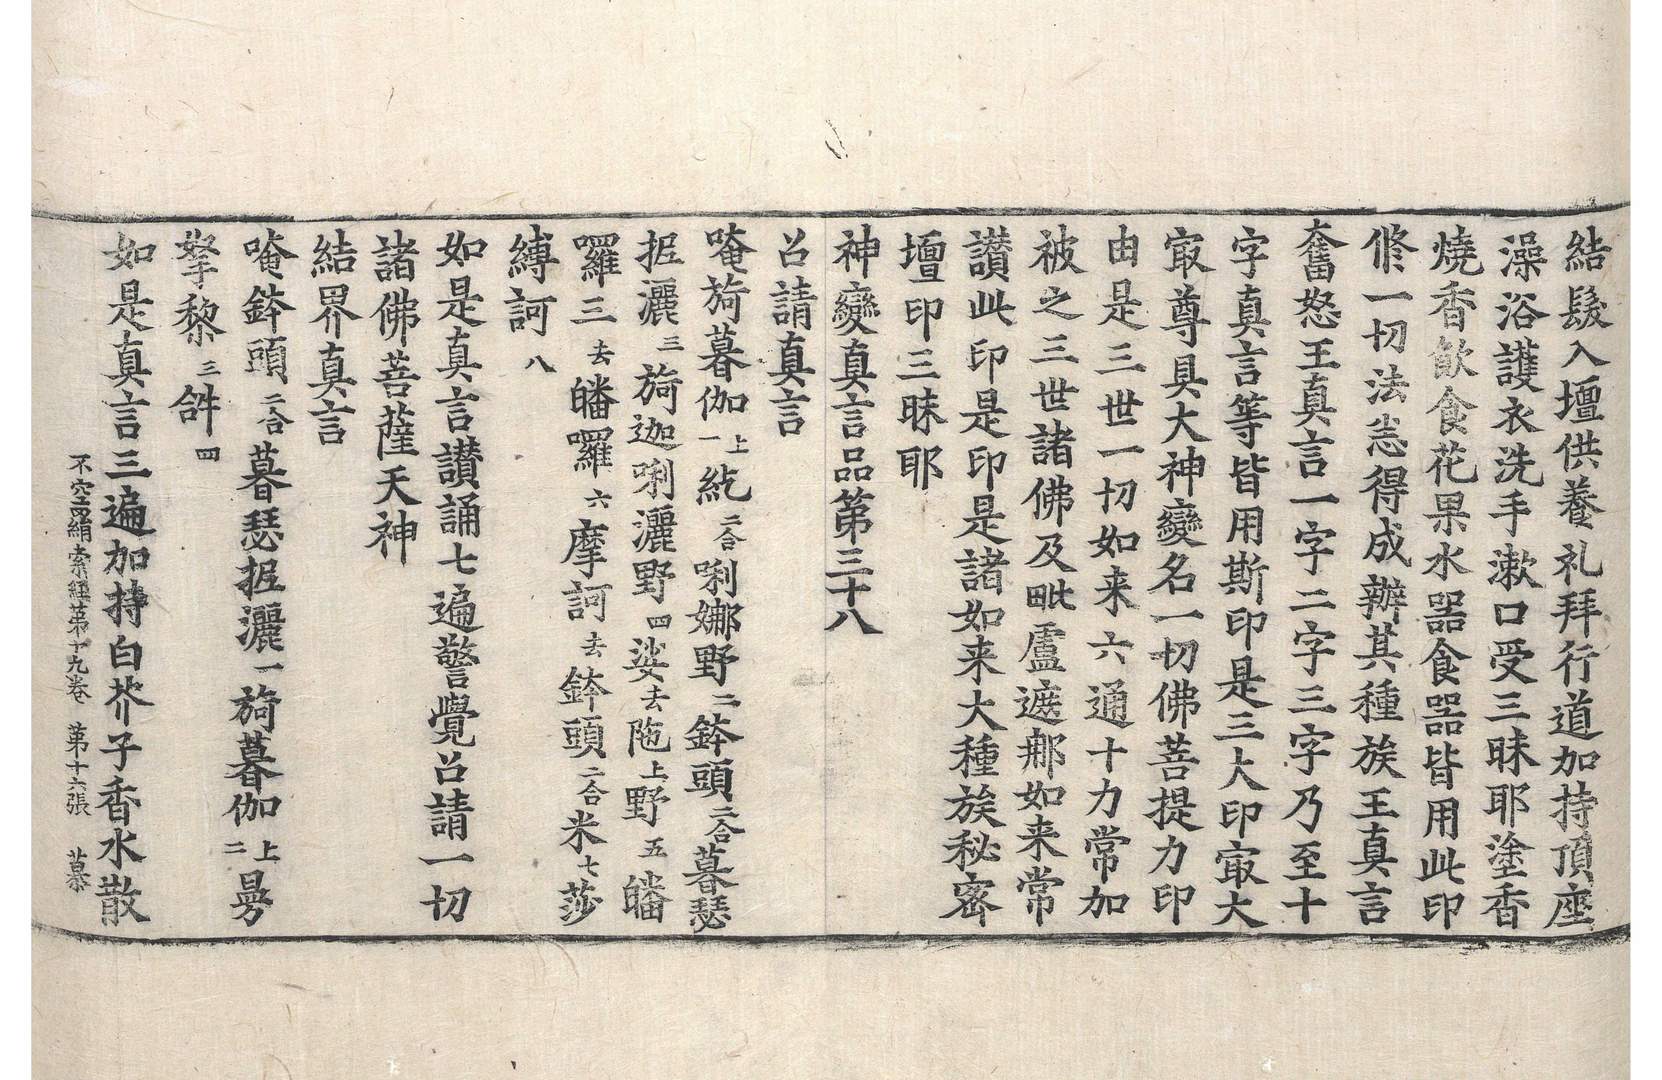 結髮入壇供養礼拜行道加持頂座
澡浴護衣洗手漱口受三昧耶塗香
燒香飲食花果水器食器皆用此印
修一切法悉得成辦其種族王真言
奮怒王真言一字二字三字乃至十
字真言等皆用斯印是三大印㝡大
㝡尊具大神變名一切佛菩提力印
由是三世一切如来六通十力常加
被之三世諸佛及毗盧遮那如来常
讚此印是印是諸如来大種族秘密
壇印三昧耶
神變真言品第三十八
召請真言
唵旖暮伽上一紇二合唎娜野二鉢頭二合暮瑟
抳灑三旖迦唎灑野四娑去陁上野五皤
囉三去皤囉六摩訶去鉢頭二合米七莎
縛訶八
如是真言讚誦七遍警覺召請一切
諸佛菩薩天神
結界真言
唵鉢頭二合暮瑟抳灑一旖暮伽上二曼
拏黎三𤙖四
如是真言三遍加持白芥子香水散
不空羂索經第十九卷　第十六張　慕